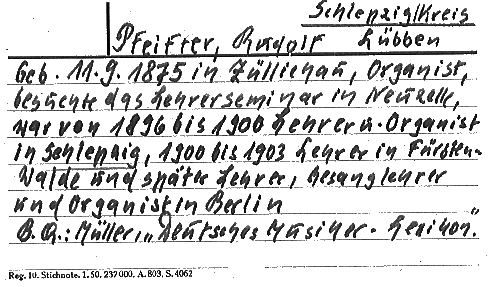 Schlepzig/Kreis
Pfeiffer, Rudolf Lübben
Geb. 11. 9. 1875 in Züllichau, Organist,
besuchte das Lehrerseminar in Neuzelle,
war von 1896 bis 1900 Lehrer u. Organist
in Schlepzig, 1900 bis 1903 Lehrer in Fürsten-
walde und später Lehrer, Gesanglehrer
und Organist in Berlin
B. Q.: Müller, „Deutsches Musiker-Lexikon."
Reg. 10. Stichnote. 1. 50. 237 000. A. 803. S. 4062